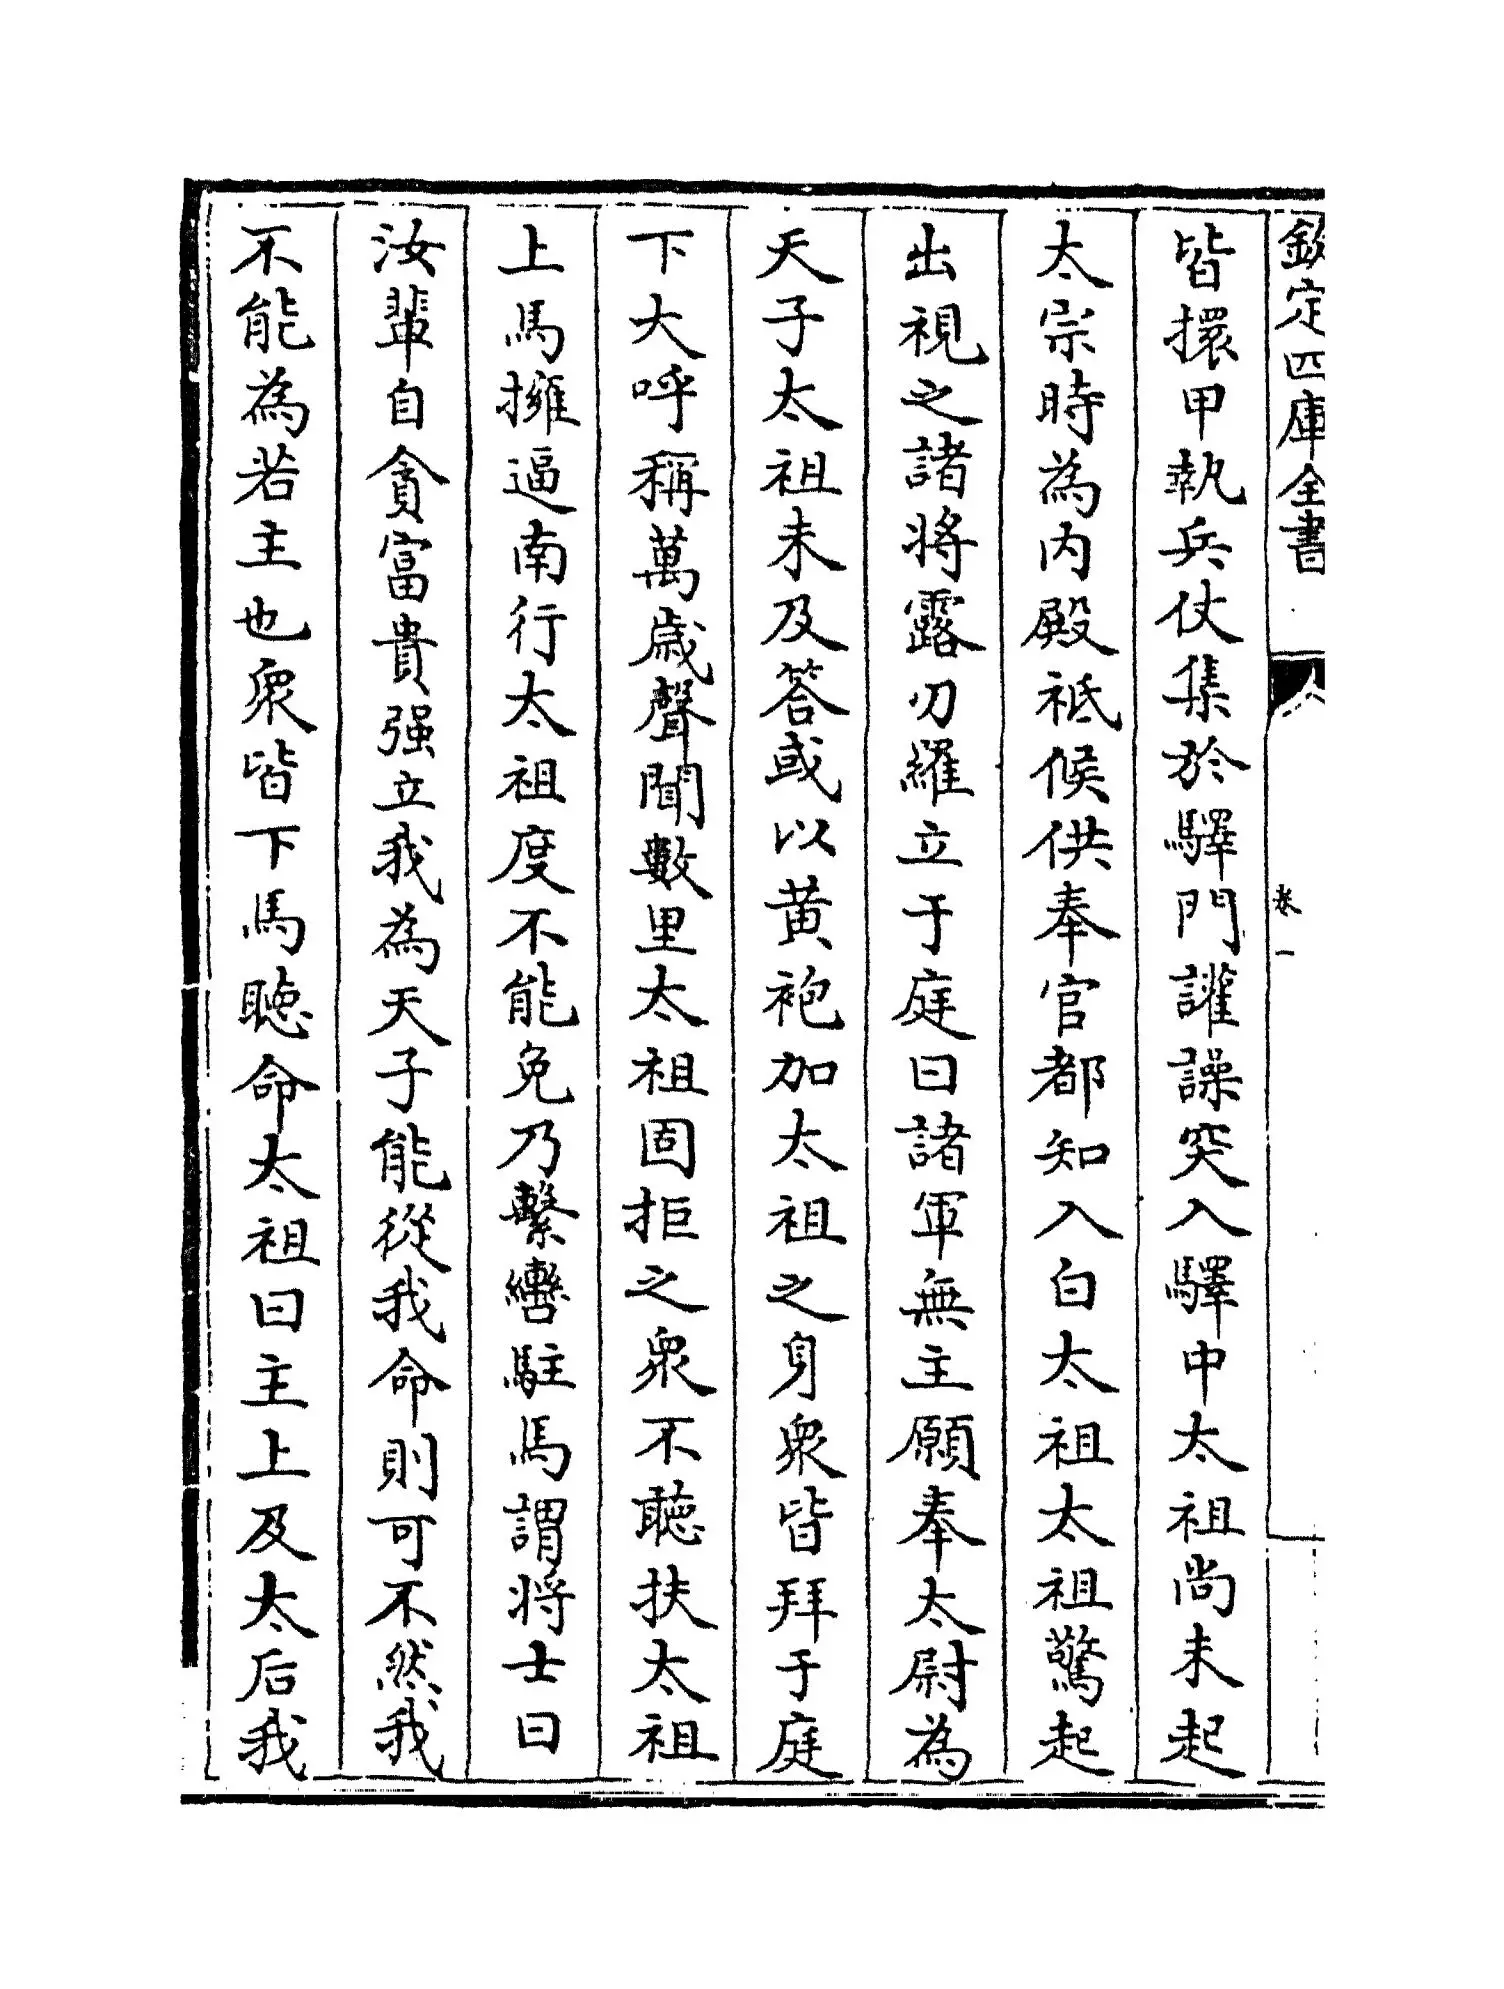 欽定四庫全書
卷一
皆擐甲執兵仗集於驛門讙譟突入驛中太祖尚未起
太宗時為内殿祗候供奉官都知入白太祖太祖驚起
出視之諸將露刃羅立于庭曰諸軍無主願奉太尉為
天子太祖未及答或以黄袍加太祖之身衆皆拜于庭
下大呼稱萬歲聲聞數里太祖固拒之衆不聽扶太祖
上馬擁逼南行太祖度不能免乃繫轡駐馬謂將士曰
汝輩自貪富貴强立我為天子能從我命則可不然我
不能為若主也衆皆下馬聽命太祖曰主上及太后我